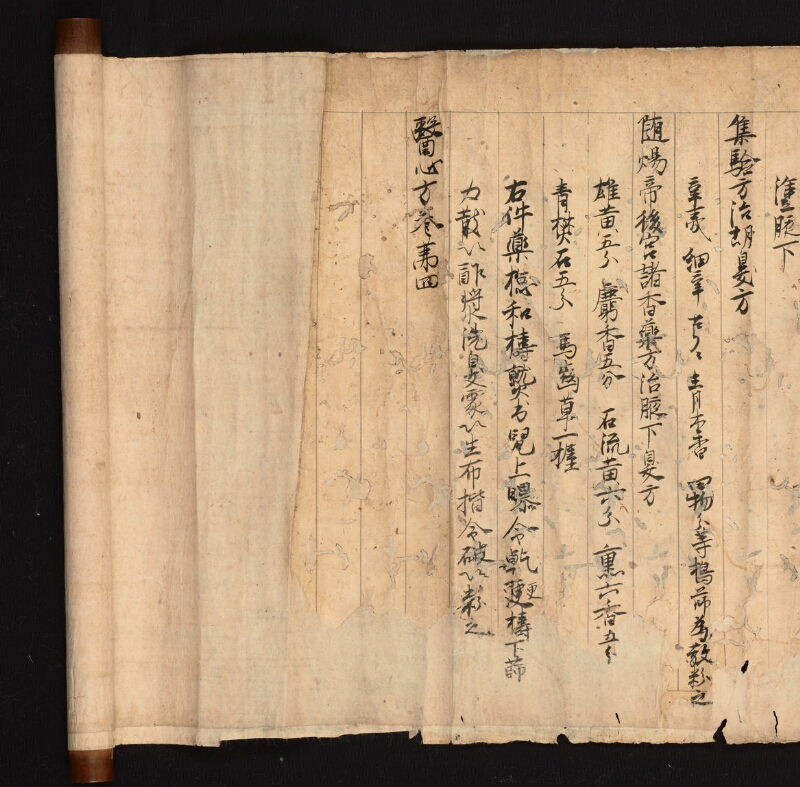 塗腋下
集驗方治胡臭方
辛夷 細辛 青木香 四物分等搗篩為散粉之
隨煬帝後宮諸香藥方治腋下臭方
雄黃五分 麝香五分 石流黃六分 薫六香五分
青樊石五分 馬齒草一握
右件藥惣和擣 上曝令乾更擣下篩
為散以酢漿洗臭處以生布揩令破以粉之
醫心方卷第四